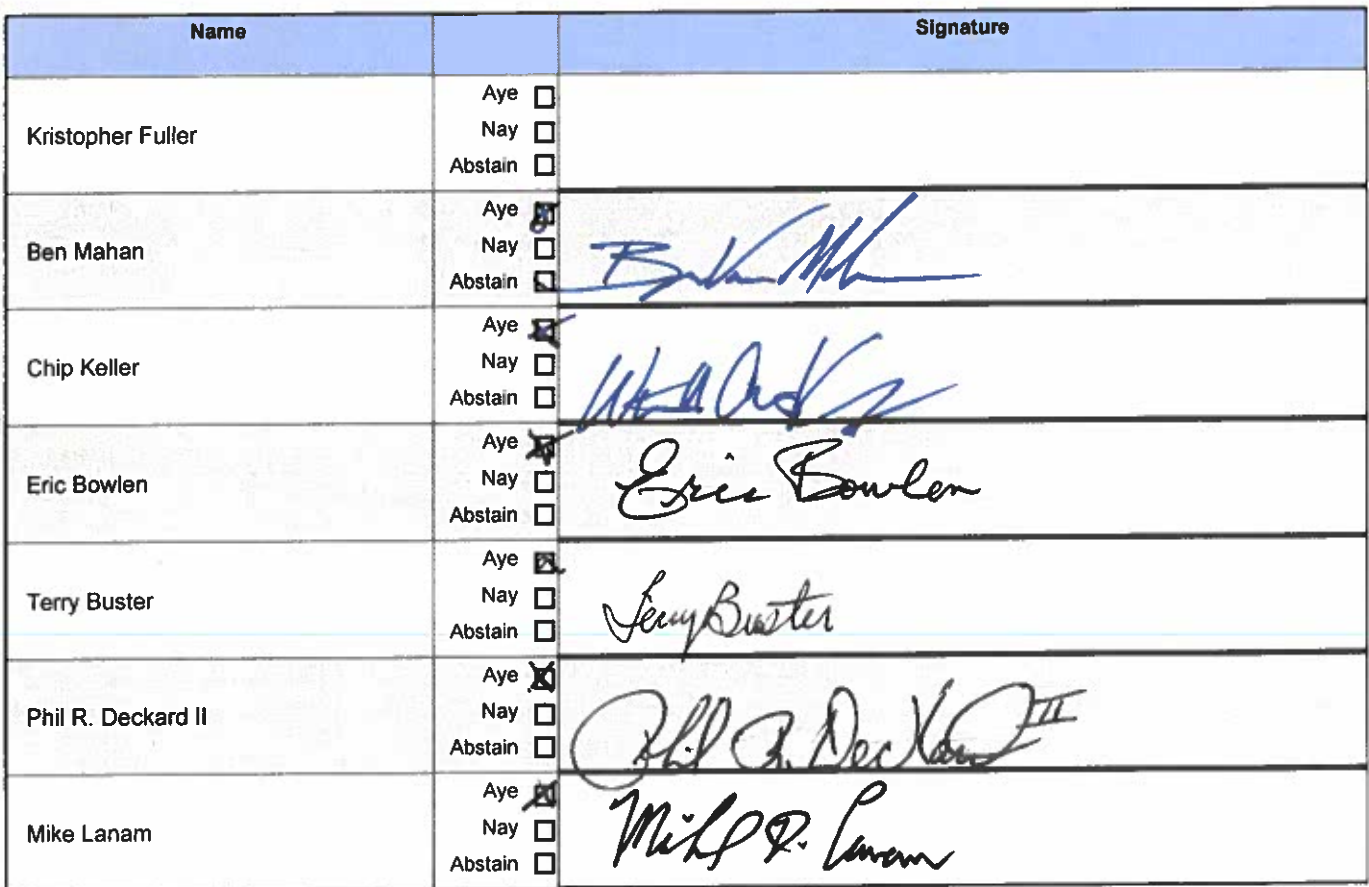 Name Signature
Kristopher Fuller
Aye
Nay
Abstain
Ben Mahan
Aye
Nay
Abstain
Chip Keller
Aye
Nay
Abstain
Eric Bowlen
Aye
Nay
Abstain
Eric Bowlen
Terry Buster
Aye
Nay
Abstain
Terry Buster
Phil R. Deckard II
Aye
Nay
Abstain
Phil R. Deckard II
Mike Lanam
Aye
Nay
Abstain